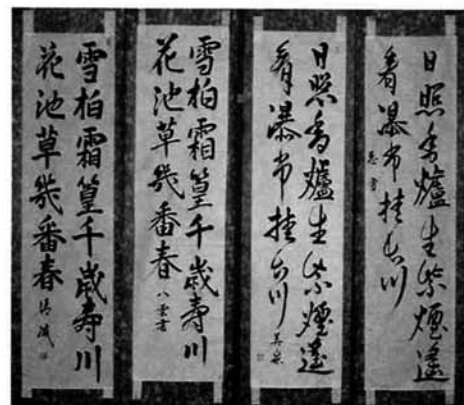 日照香爐生紫煙遙
看瀑布挂前川
日照香爐生紫煙遙
看瀑布挂前川
雪柏霜篁千歲寿川
花池草幾番春
八雲書
雪柏霜篁千歲寿川
花池草幾番春